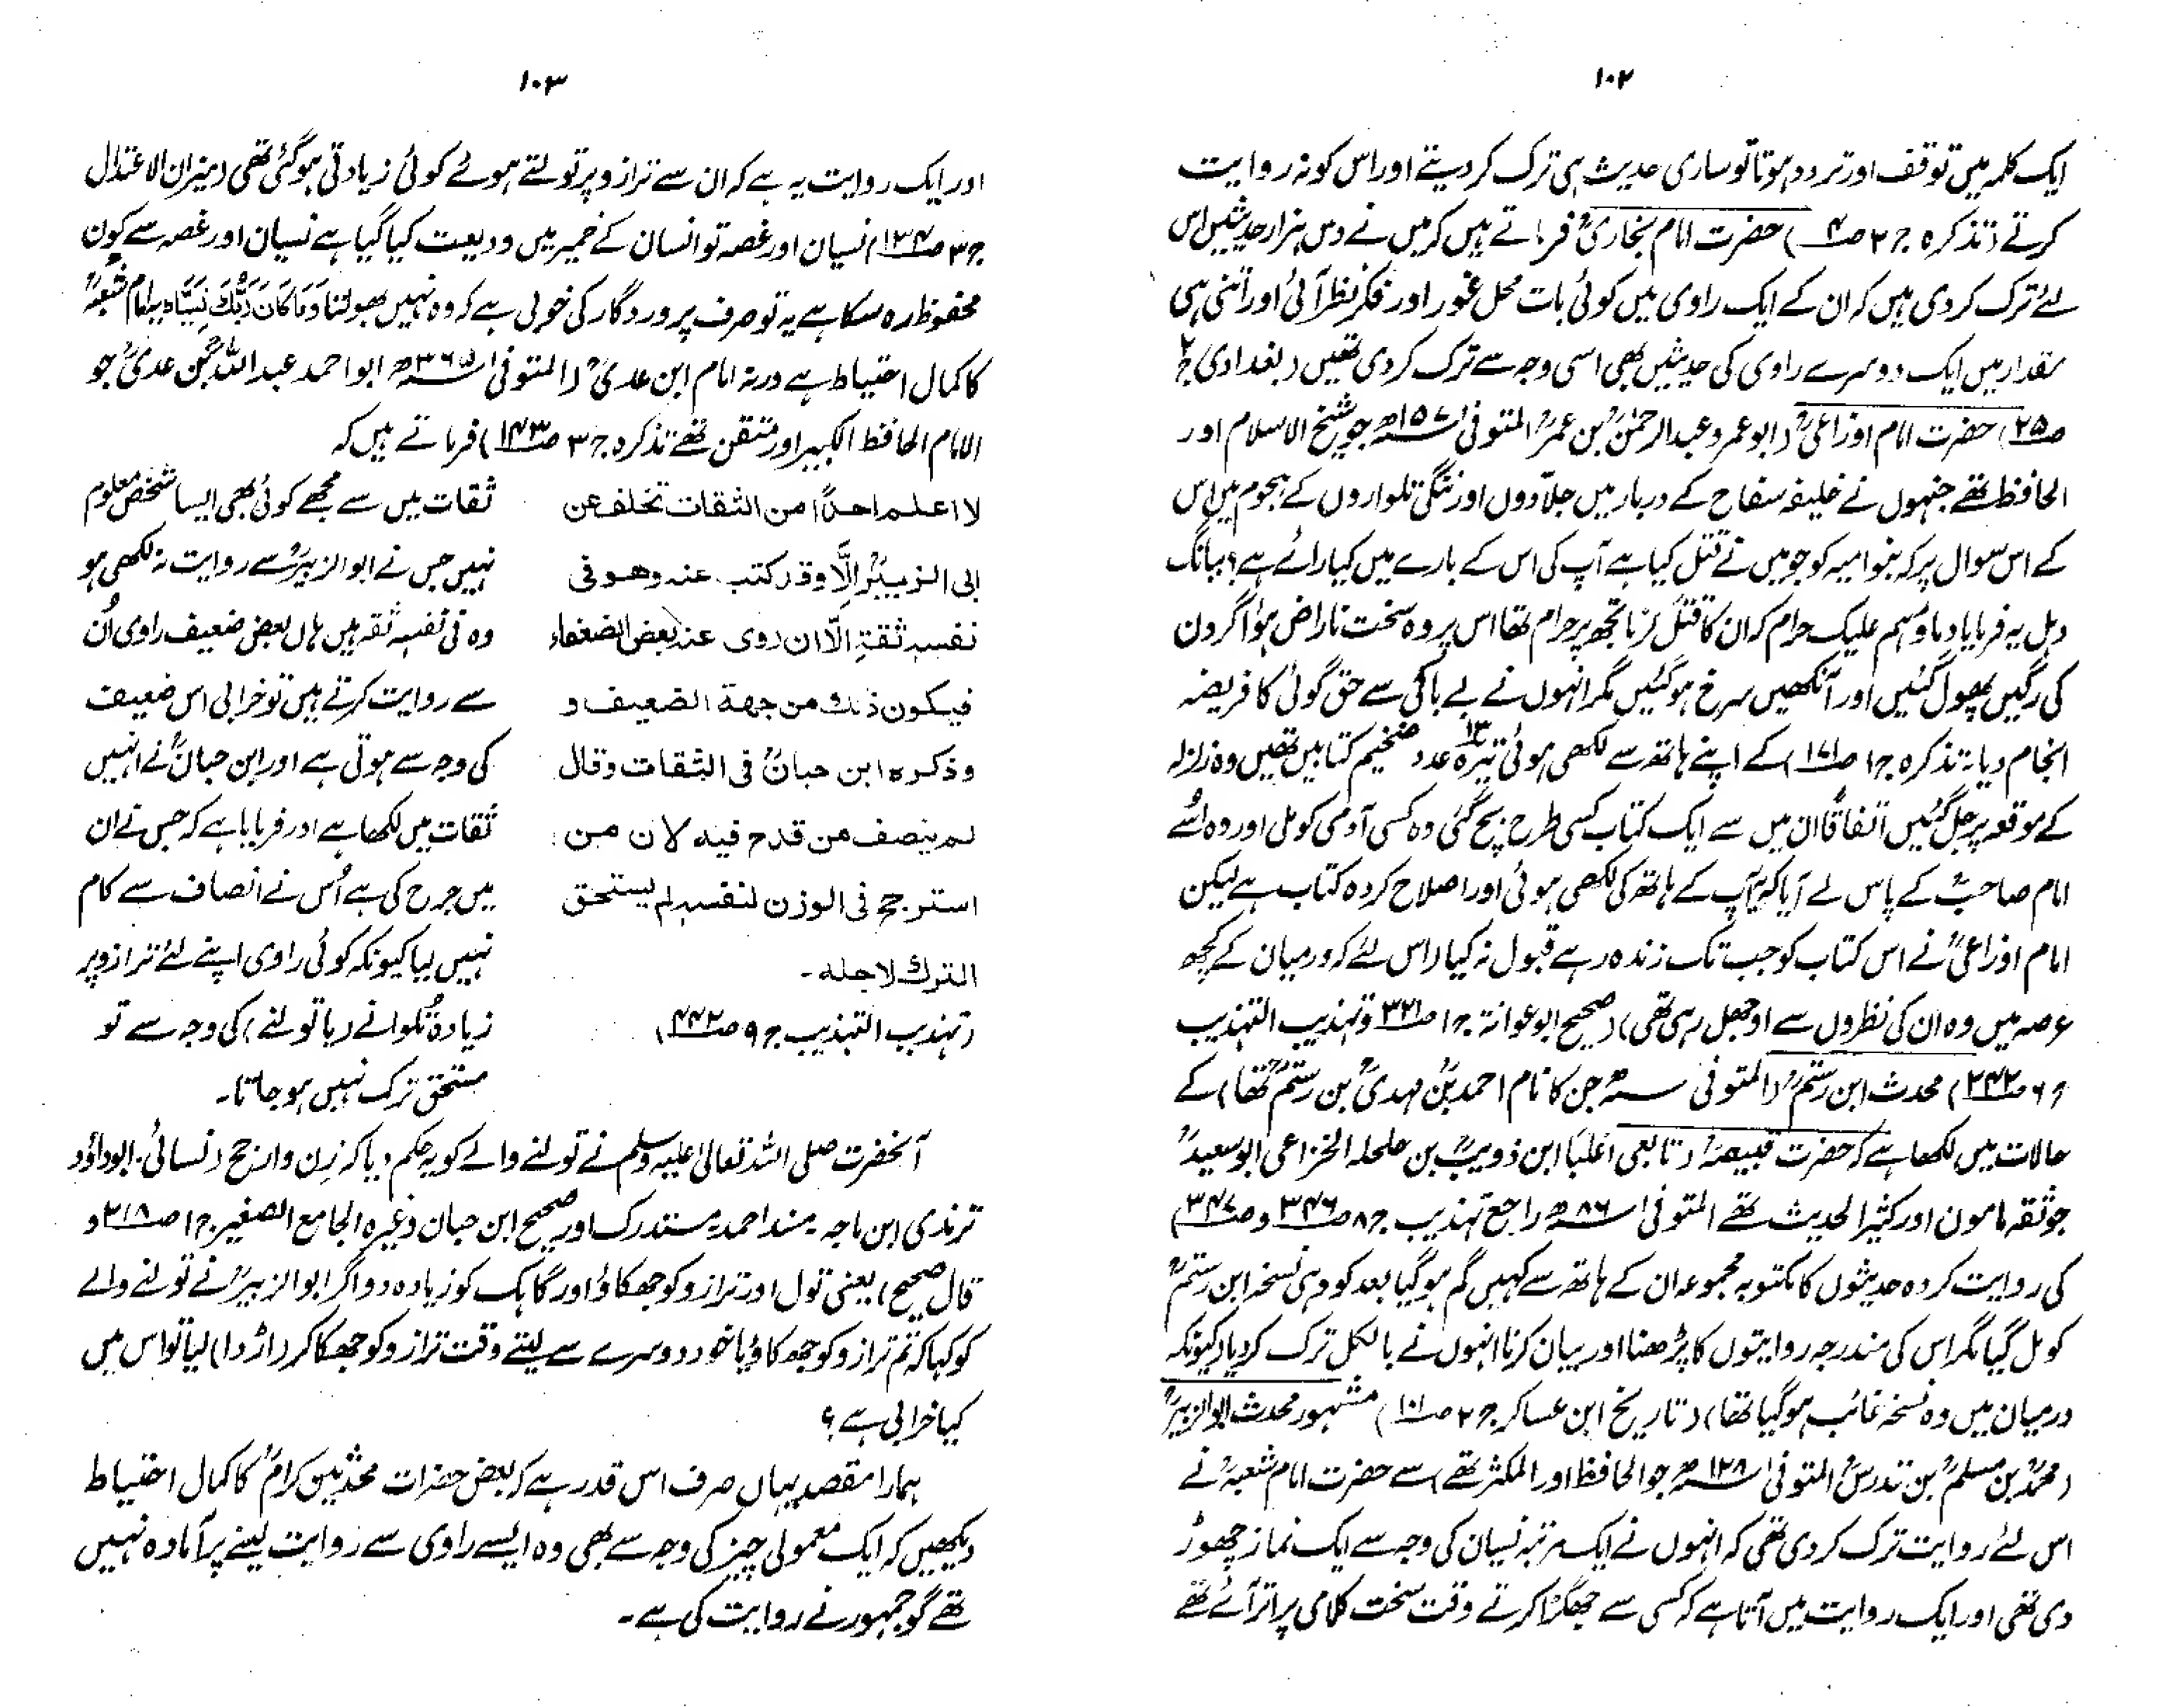 ۱۰۲
ایک کلمہ میں توقف اور تردد ہوتا تو ساری حدیث ہی ترک کر دیتے اور اس کو نہ روایت
کرتے (تذکرہ ج ۲ ص۴) حضرت امام بخاریؒ فرماتے ہیں کہ میں نے دس ہزار حدیثیں اس
لئے ترک کر دی ہیں کہ ان کے ایک راوی میں کوئی بات محل غور اور فکر نظر آئی اور اتنی ہی
مقدار میں ایک دوسرے راوی کی حدیثیں بھی اسی وجہ سے ترک کر دی تھیں (بغدادی ج۲
ص۲۵) حضرت امام اوزاعیؒ (ابو عمرو عبدالرحمٰنؒ بن عمرؒ المتوفی ۱۵۷ھ جو شیخ الاسلام اور
الحافظ تھے جنہوں نے خلیفہ سفاح کے دربار میں جلّادوں اور ننگی تلواروں کے ہجوم میں اس
کے اس سوال پر کہ بنو امیہ کو جو میں نے قتل کیا ہے آپ کی اس کے بارے میں کیا رائے ہے؟ ببانگ
دہل یہ فرمایا دماؤہم علیک حرام کہ ان کا قتل کرنا تجھ پر حرام تھا اس پر وہ سخت ناراض ہوا گردن
کی رگیں پھول گئیں اور آنکھیں سرخ ہو گئیں مگر انہوں نے بے باکی سے حق گوئی کا فریضہ
انجام دیا: تذکرہ ج۱ ص۱۷۱) کے اپنے ہاتھ سے لکھی ہوئی تیرہ ۱۳ عدد ضخیم کتابیں تھیں وہ زلزلہ
کے موقعہ پر جل گئیں اتفاقًا ان میں سے ایک کتاب کسی طرح بچ گئی وہ کسی آدمی کو ملی اور وہ اُسے
امام صاحبؒ کے پاس لے آیا کہ یہ آپ کے ہاتھ کی لکھی ہوئی اور اصلاح کردہ کتاب ہے لیکن
امام اوزاعیؒ نے اس کتاب کو جب تک زندہ رہے قبول نہ کیا (اس لئے کہ درمیان کے کچھ
عرصہ میں وہ ان کی نظروں سے اوجھل رہی تھی) (صحیح ابو عوانۃ ج۱ ص۳۲۱ و تہذیب التہذیب
ج۶ ص۲۴۲) محدث ابن رستمؒ (المتوفی ھ جن کا نام احمدؒ بن مہدیؒ بن رستمؒ تھا) کے
حالات میں لکھا ہے کہ حضرت قبیصہؒ (تابعی اغلباً ابن ذویبؒ بن حلحلہ الخزاعی ابو سعیدؒ
جو ثقہ مامون اور کثیر الحدیث تھے المتوفی ۸۶ھ راجع تہذیب ج۸ ص۳۴۶ و ص۳۴۷)
کی روایت کردہ حدیثوں کا مکتوبہ مجموعہ ان کے ہاتھ سے کہیں گم ہو گیا بعد کو وہی نسخہ ابن رستمؒ
کو مل گیا مگر اس کی مندرجہ روایتوں کا پڑھنا اور بیان کرنا انہوں نے بالکل ترک کر دیا (کیونکہ
درمیان میں وہ نسخہ غائب ہو گیا تھا) (تاریخ ابن عساکر ج۲ ص۱۰۱) مشہور محدث ابو الزبیرؒ
(محمدؒ بن مسلمؒ بن تدرسؒ المتوفی ۱۲۸ھ جو الحافظ اور المکثر تھے) سے حضرت امام شعبہؒ نے
اس لئے روایت ترک کر دی تھی کہ انہوں نے ایک مرتبہ نسیان کی وجہ سے ایک نماز چھوڑ
دی تھی اور ایک روایت میں آتا ہے کہ کسی سے جھگڑا کرتے وقت سخت کلامی پر اتر آئے تھے
۱۰۳
اور ایک روایت یہ ہے کہ ان سے ترازو پر تولتے ہوئے کوئی زیادتی ہو گئی تھی (میزان الاعتدال
ج۳ ص۱۳۴) نسیان اور غصہ تو انسان کے خمیر میں ودیعت کیا گیا ہے نسیان اور غصہ سے کون
محفوظ رہ سکا ہے یہ تو صرف پروردگار کی خوبی ہے کہ وہ نہیں بھولتا وَمَا كَانَ رَبُّكَ نَسِيًّا یہ امام شعبہؒ
کا کمال احتیاط ہے ورنہ امام ابن عدیؒ (المتوفی ۳۶۵ھ ابو احمد عبداللہؒ بن عدیؒ جو
الامام الحافظ الکبیر اور متقن تھے تذکرہ ج۳ ص۱۴۳) فرماتے ہیں کہ
لا اعلم احدًا من الثقات تخلف عن
ابی الزبیرؒ اِلَّا وقد کتب عنہ وھو فی
نفسہ ثقۃ اِلّا ان روی عنہ بعض الضعفاء
فیکون ذلك من جھۃ الضعیف و
وذکرہ ابن حبانؒ فی الثقات وقال
لم ینصف من قدح فیہ لان من
استرجح فی الوزن لنفسہ لم یستحق
الترك لاجلہ۔
(تہذیب التہذیب ج۹ ص۴۴۲)
ثقات میں سے مجھے کوئی بھی ایسا شخص معلوم
نہیں جس نے ابو الزبیرؒ سے روایت نہ لکھی ہو
وہ فی نفسہ ثقہ ہیں ہاں بعض ضعیف راوی اُن
سے روایت کرتے ہیں تو خرابی اس ضعیف
کی وجہ سے ہوتی ہے اور ابن حبانؒ نے انہیں
ثقات میں لکھا ہے اور فرمایا ہے کہ جس نے ان
میں جرح کی ہے اُس نے انصاف سے کام
نہیں لیا کیونکہ کوئی راوی اپنے لئے ترازو پر
زیادہ تُلوانے (یا تولنے) کی وجہ سے تو
مستحق ترک نہیں ہو جاتا۔
آنحضرت صلی اللہ تعالیٰ علیہ وسلم نے تولنے والے کو یہ حکم دیا کہ زِن وارجح (نسائی۔ ابوداؤد
ترمذی ابن ماجہ۔ مسند احمد۔ مستدرک اور صحیح ابن حبان وغیرہ الجامع الصغیر ج۱ ص۳۱۸ و
قال صحیح) یعنی تول اور ترازو کو جھکاؤ اور گاہک کو زیادہ دو اگر ابو الزبیرؒ نے تولنے والے
کو کہا کہ تم ترازو کو جھکاؤ یا خود دوسرے سے لیتے وقت ترازو کو جھکا کر (اڑدا) لیا تو اس میں
کیا خرابی ہے؟
ہمارا مقصد یہاں صرف اس قدر ہے کہ بعض حضرات محدثین کرامؒ کا کمال احتیاط
دیکھیں کہ ایک معمولی چیز کی وجہ سے بھی وہ ایسے راوی سے روایت لینے پر آمادہ نہیں
تھے گو جمہور نے روایت کی ہے۔